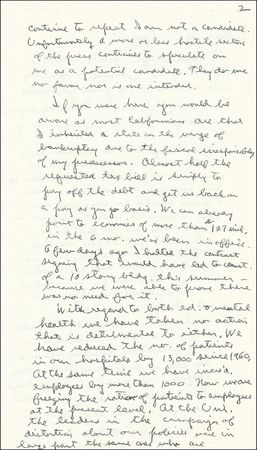 2
continue to repeat I am not a candidate.
Unfortunately a more or less hostile section
of the press continues to speculate on
me as a potential candidate. They do me
no favor nor is one intended.
If you were here you would be
aware as most Californians are that
I inherited a state on the verge of
bankruptcy due to the fiscal irresponsibility
of my predecessor. Almost half the
requested tax bill is simply to
pay off the debt and get us back on
a pay as you go basis. We can already
point to economies of more than 127 mil.
in the 6 mo. we've been in office.
A few days ago I halted the contract
signing that would have led to const.
of a 10 story bldg. this summer
because we were able to prove there
was no need for it.
With regard to both ed. & mental
health we have taken no action
that is detrimental to either. We
have reduced the no. of patients
in our hospitals by 13,000 since 1960.
At the same time we have inc'd.
employees by more than 1000. Now we are
freezing the ratio of patients to employees
at the present level. At the Uni.
the leaders in the campaign of
distortion about our policies were in
large part the same ones who are